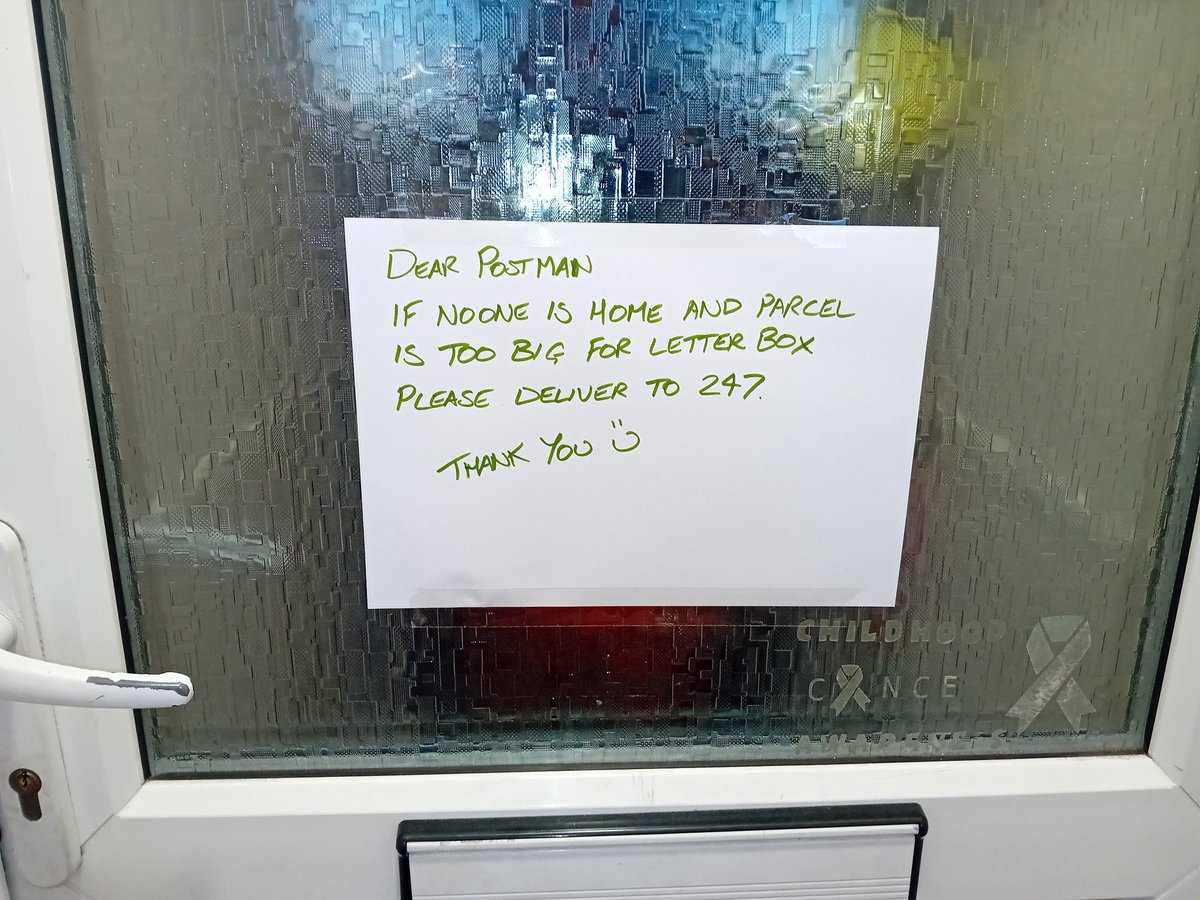 DEAR POSTMAN
IF NOONE IS HOME AND PARCEL
IS TOO BIG FOR LETTER BOX
PLEASE DELIVER TO 247.
THANK YOU
CHILDHOOD
C NCE